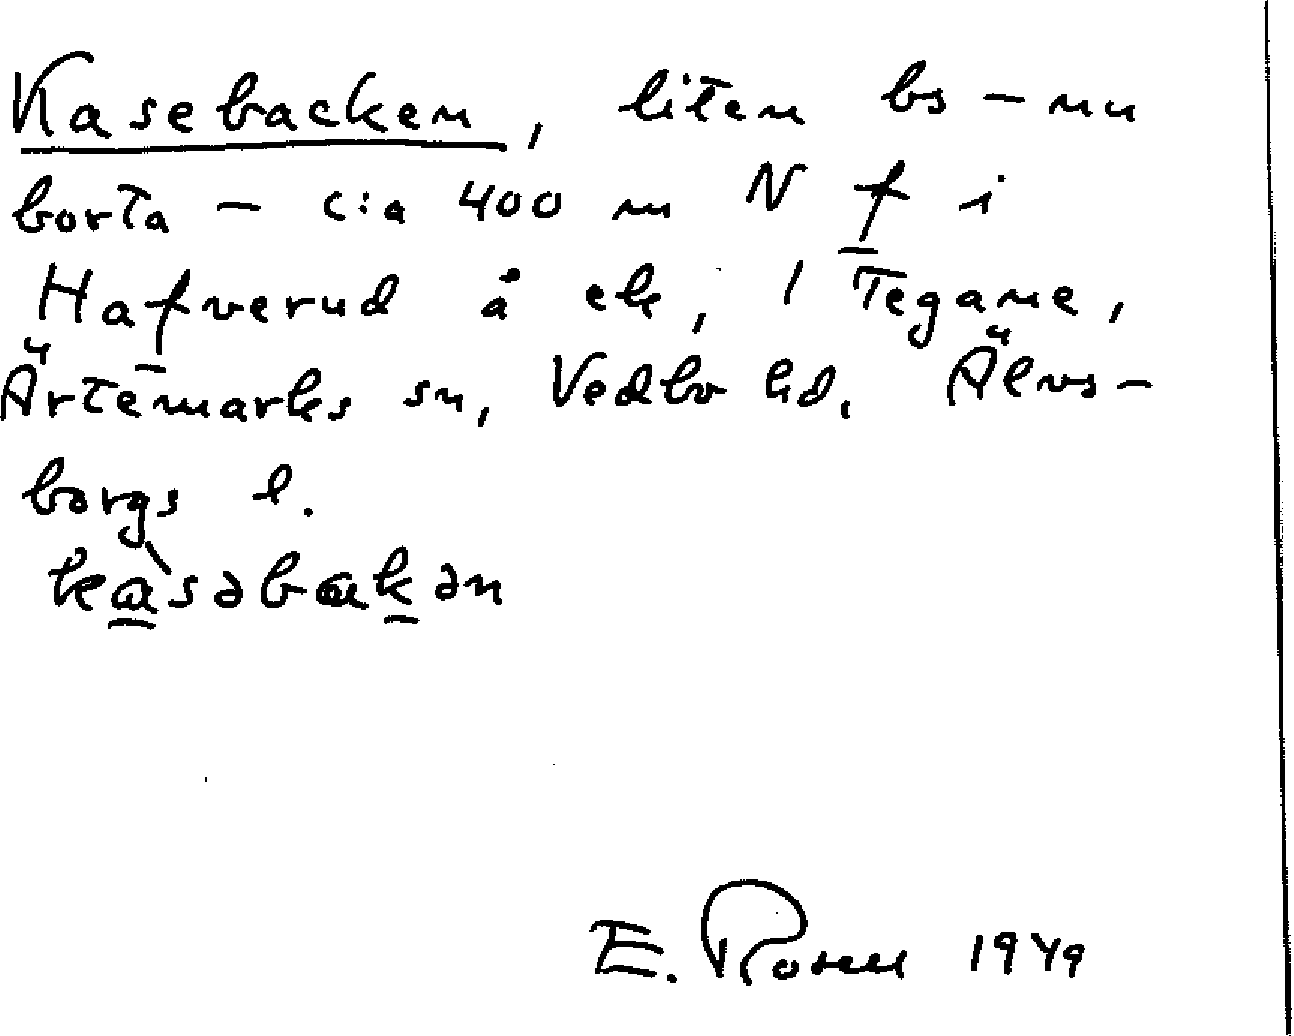 Kasebacken, liten bs – nu
borta – c:a 400 m N f i
Hafverud å ek, 1 Tegane,
Ärtemarks sn, Vedbo hd. Älvs-
borgs l.
kà̱səbaḵən
E. Rosen 1949